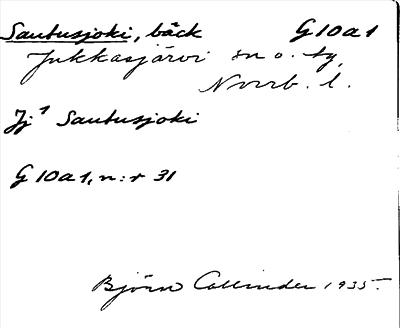 Sautusjoki, bäck G10a1
Jukkasjärvi sn o. tg,
Norrb. l.
Jj¹ Sautusjoki
G 10a1, n:r 31
Björn Collinder 1935.